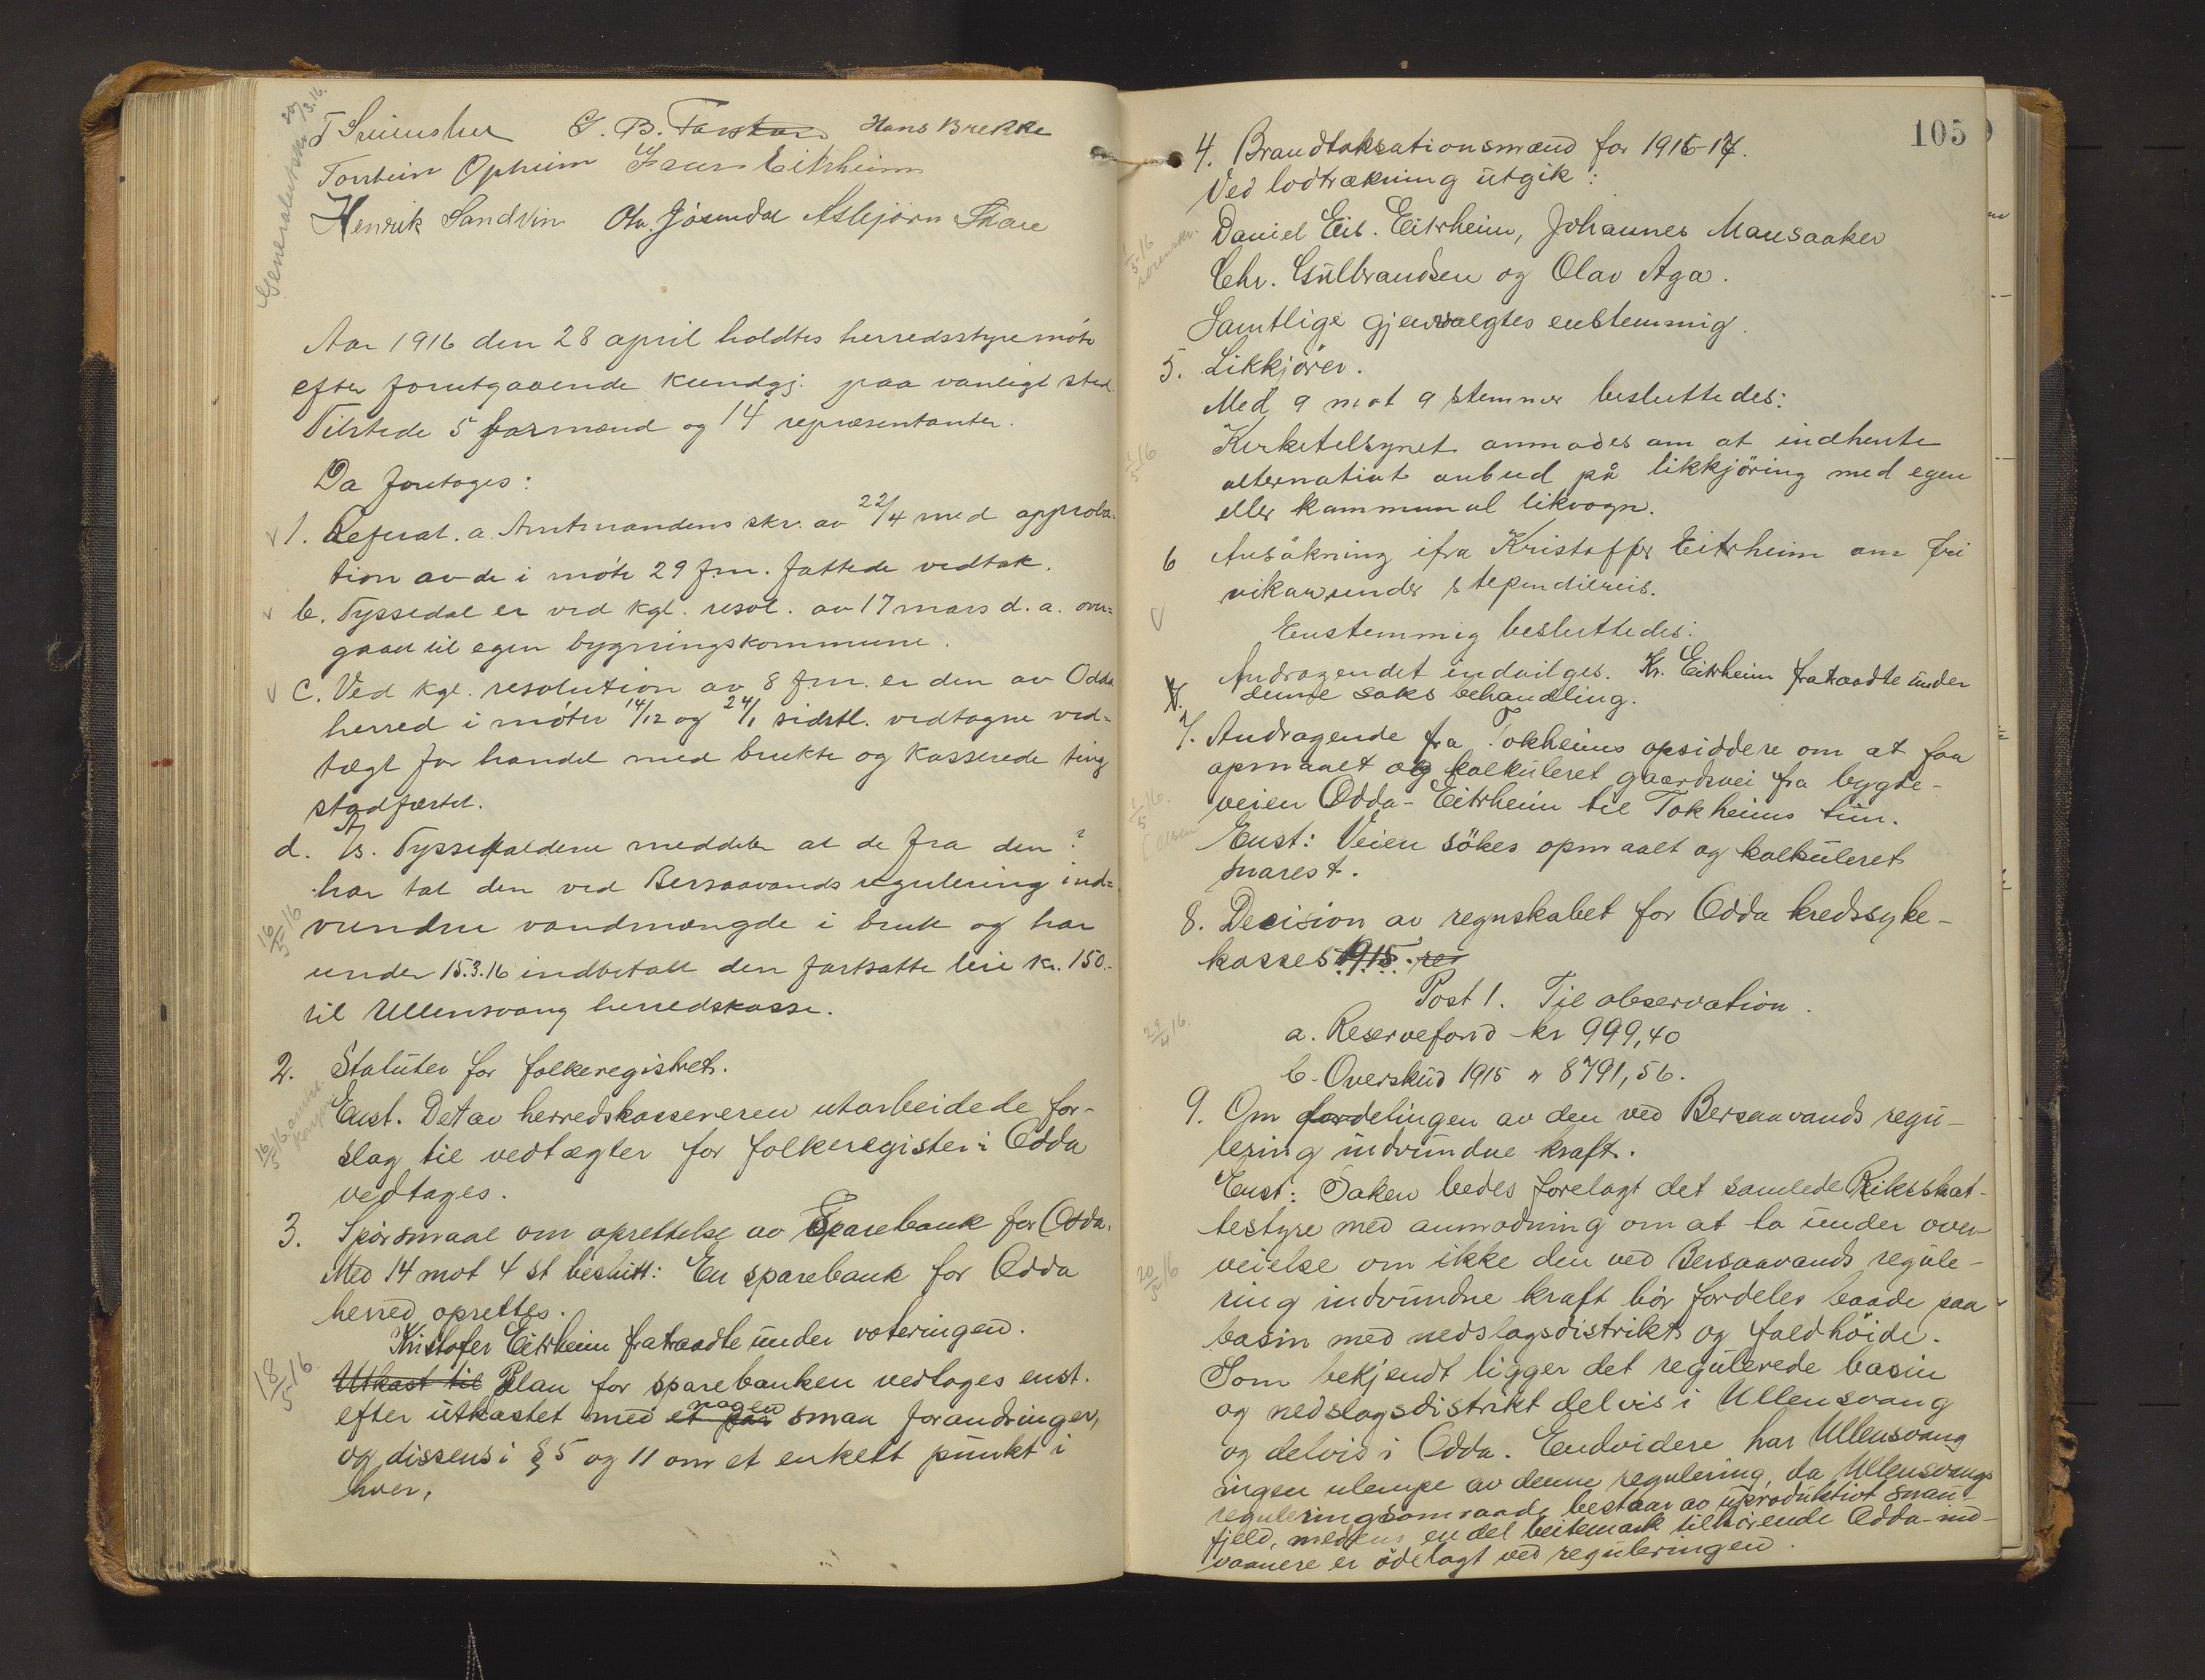 Generalutskr 30/3.16.
G. B. Hans Brekke
Torstein Opheim Eitrheim
Henrik Sandvin Ola Jösendal Asbjørn Skare
Aar 1916 den 28 april holdtes herredsstyremöte
efter forutgaaende kundgj. paa vanligt sted.
Tilstede 5 formænd og 14 repræsentanter.
Da foretoges:
1. Referat. a. Amtmandens skr. av 22/4 med approba-
tion av de i möte 29 f.m. fattede vedtak.
b. Tyssedal er ved kgl. resol. av 17 mars d. a. over=
gaaet til egen bygningskommune.
c. Ved kgl. resolution av 8 f.m. er den av Odda
herred i möter 14/12 og 24/1 sidstl. vedtagne ved=
tægt for handel med brukte og kasserede ting
stadfæstet.
d. A/s. Tyssefaldene meddeler at de fra den ?
har tat den ved Bersaavands regulering ind=
vundne vandmængde i bruk og har
16/5 16
under 15.3.16 indbetalt den fastsatte leie kr. 150.-
til Ullensvang herredskasse.
2. Statuter for folkeregistret.
16/5 16
Enst. Det av herredskassereren utarbeidede for-
slag til vedtægter for folkeregister i Odda
vedtages.
3. Spörsmaal om oprettelse av Sparebank for Odda.
Med 14 mot 4 st besluitt: En sparebank for Odda
herred oprettes.
Kristofer Eitrheim fratraadte under voteringen.
18/5 16
Utkast til Plan for sparebanken vedtages enst.
efter utkastet med et par nogen smaa forandringer,
og dissens i § 5 og 11 om et enkelt punkt i
hver.
105
4. Brandtaksationsmænd for 1916-17.
Ved lodtrækning utgik:
1/5 16 sorenskr.
Daniel Eil. Eitrheim, Johannes Mansaaker
Chr. Gulbrandsen og Olav Aga.
Samtlige gjenvælgtes enstemmig.
5. Likkjörer.
Med 9 mot 9 stemmer besluttedes:
1/5 16
Kirketilsynet anmodes om at indhente
alternativt anbud på likkjöring med egen
eller kommunal likvogn.
6 Ansökning ifra Kristoffer Eitrheim om fri
vikar under stipendiereis.
Enstemmig besluttedes:
Andragendet indvilges. Kr. Eitrheim fratraadte under
denne saks behandling.
7. Andragende fra Tokheims opsiddere om at faa
opmaalt og kalkuleret gaardsvei fra bygde-
veien Odda-Eitrheim til Tokheims tun.
1/5 16.
Enst: Veien sökes opmaalt og kalkuleret
snarest.
8. Decision av regnskabet for Odda kredssyke-
kasses 1915.
Post 1. Til observation.
29/4 16.
a. Reservefond kr 999,40
b. Overskud 1915 " 8791,56.
9. Om fordelingen av den ved Bersaavands regu-
lering indvundne kraft.
Enst: Saken bedes forelagt det samlede Riksskat-
testyre med anmodning om at ta under over-
veielse om ikke den ved Bersaavands regule-
20/5 16
ring indvundne kraft bör fordeles baade paa
basin med nedslagsdistrikt og faldhöide.
Som bekjendt ligger det regulerede basin
og nedslagsdistrikt delvis i Ullensvang
og delvis i Odda. Endvidere har Ullensvang
ingen ulempe av denne regulering, da Ullensvangs
reguleringsomraade bestaar av uproduktivt snau-
fjeld, medens en del beitemark tilhörende Odda-ind-
vaanere er ödelagt ved reguleringen.